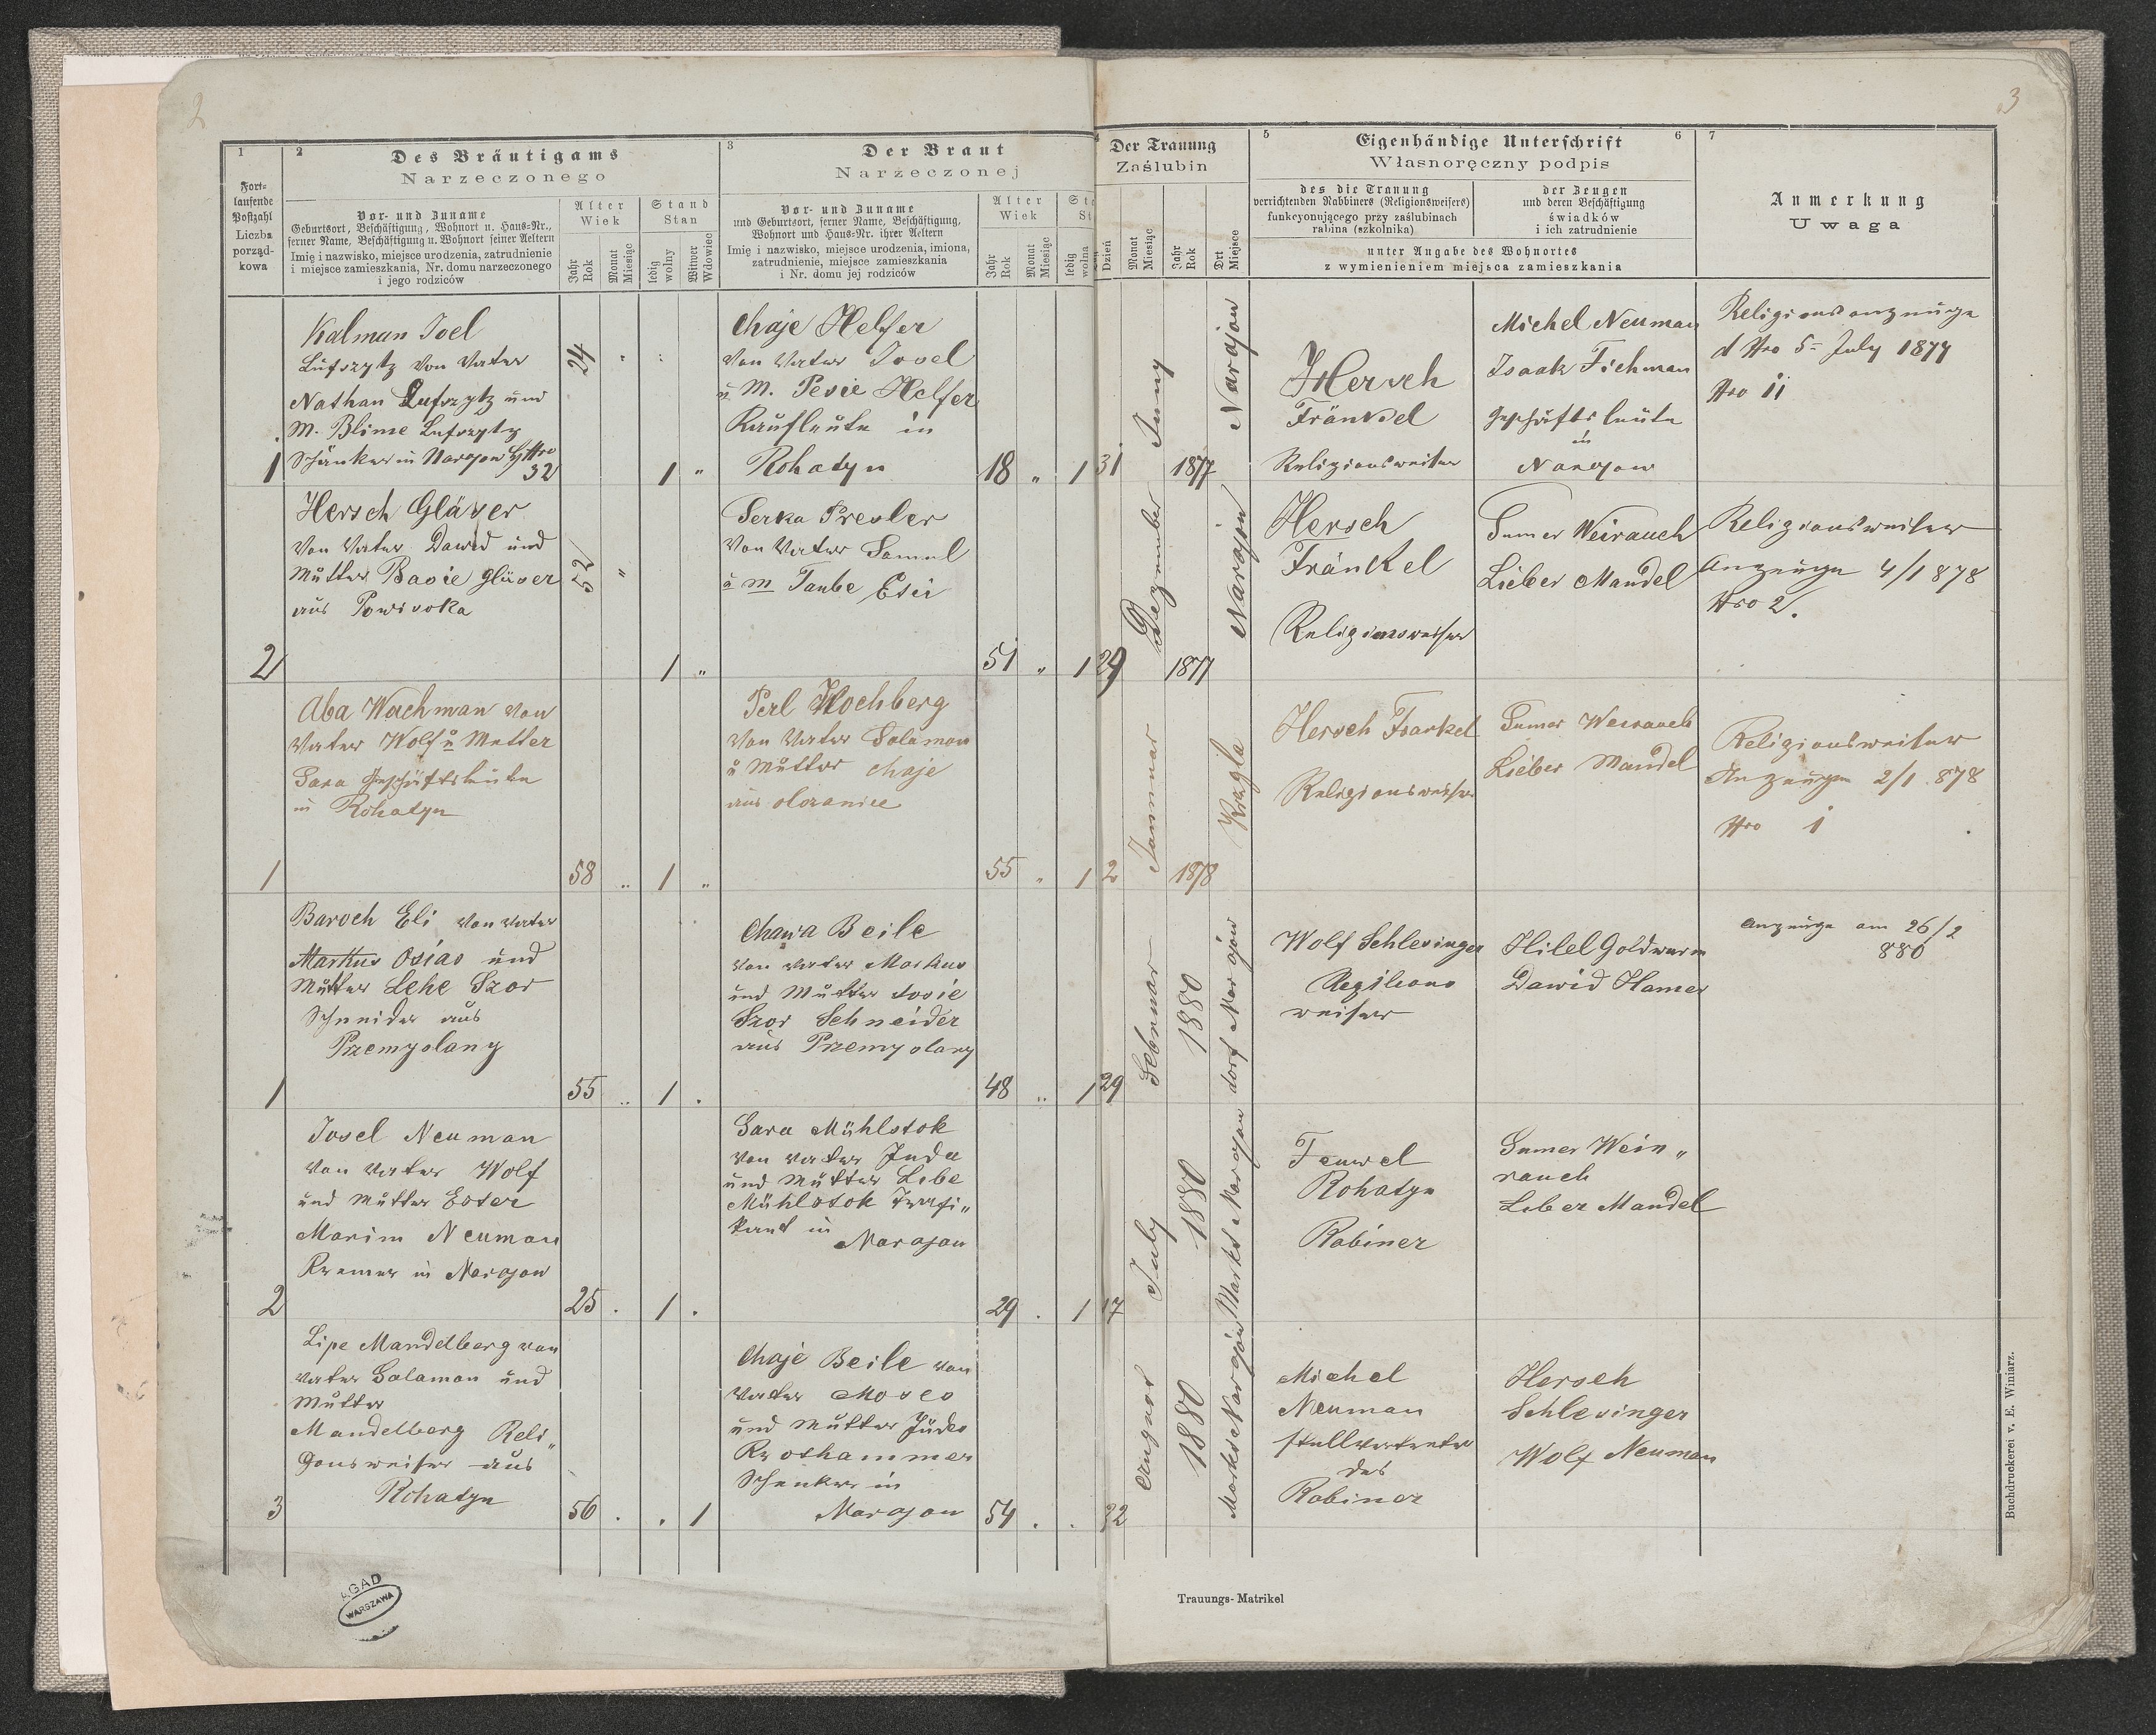 2
3
1
Fort-
laufende
Postzahl
Liczba
porząd-
kowa
2
Des Bräutigams
Narzeczonego
Vor- und Zuname
Geburtsort, Beschäftigung, Wohnort u. Haus-Nr.,
ferner Name, Beschäftigung u. Wohnort seiner Aeltern
Imię i nazwisko, miejsce urodzenia, zatrudnienie
i miejsce zamieszkania, Nr. domu narzeczonego
i jego rodziców
Alter
Wiek
Jahr
Rok
Monat
Miesiąc
Stand
Stan
ledig
wolny
Witwer
Wdowiec
3
Der Braut
Narzeczonej
Vor- und Zuname
und Geburtsort, ferner Name, Beschäftigung,
Wohnort und Haus-Nr. ihrer Aeltern
Imię i nazwisko, miejsce urodzenia, imiona,
zatrudnienie, miejsce zamieszkania
i Nr. domu jej rodziców
Alter
Wiek
Jahr
Rok
Monat
Miesiąc
ledig
wolna
Der Trauung
Zaślubin
Dzień
Monat
Miesiąc
Jahr
Rok
Ort
Miejsce
5
Eigenhändige Unterschrift
6
Własnoręczny podpis
des die Trauung
verrichtenden Rabbiners (Religionsweisers)
funkcyonującego przy zaślubinach
rabina (szkolnika)
der Zeugen
und deren Beschäftigung
świadków
i ich zatrudnienie
unter Angabe des Wohnortes
z wymienieniem miejsca zamieszkania
7
Anmerkung
Uwaga
1
Kalman Joel
Lufszytz von Vater
Nathan Lufszytz und
M. Blime Lufszytz
Schänker in Narajow HNro
32
24
1
Chaje Helfer
von Vater Josel
u M. Pesie Helfer
Kaufleute in
Rohatyn
18
1
31
Juny
1877
Narajow
Hersch
Fränkel
Religionsweiser
Michel Neuman
Isaak Fichman
Geschäftsleute
in
Narajow
Religionsanzeige
d Nro 5 July 1877
Nro 11
2
Hersch Gläser
von Vater Dawid und
Mutter Basie Gläser
aus
52
1
Serka Presler
von Vater Samuel
u M Taube
51
1
29
Dezember
1877
Narajow
Hersch
Fränkel
Religionsweiser
Sumer Weirauch
Lieber Mandel
Religionsweiser
Anzeige 4/1 878
Nro 2.
1
Aba Wachman von
Vater Wolf u Mutter
Sara Geschäftsleute
in Rohatyn
58
1
Perl Hochberg
von Vater Salamon
u Mutter Chaje
aus
55
1
2
Jannuar
1878
Hersch Frankel
Religionsweiser
Sumer Weirauch
Lieber Mandel
Religionsweiser
Anzeige 2/1 878
Nro 1
1
Baroch Eli von Vater
Markus Osias und
Mutter Lehe Szor
Schneider aus
Przemyslany
55
1
Chawa Beile
von Vater Markus
und Mutter Josie
Szor Schneider
aus Przemyslany
48
1
29
Februar
1880
dorf Narajow
Wolf Schlesinger
weiser
Hilel Goldwurm
Dawid Hamer
Anzeige am 26/2
880
2
Josel Neuman
von Vater Wolf
und Mutter Ester
Marim Neuman
Kramer in Narajow
25
1
Sara Mühlstok
von Vater Juda
und Mutter Libe
Mühlstok Trafi„
kant in
Narajow
29
1
17
July
1880
Markt Narajow
Feuwel
Rohatyn
Rabiner
Sumer Wein„
rauch
Liber Mandel
3
Lipe Mandelberg von
Vater Salamon und
Mutter
Mandelberg Reli„
gonsweiser aus
Rohatyn
56
1
Chaje Beile von
Vater Moses
und Mutter Jüdes
Rothammer
Schenker in
Narajow
54
August
1880
Markt Narajow
Michel
Neuman
stellvertreter
des
Rabiner
Hersch
Schlesinger
Wolf Neuman
AGAD
WARSZAWA
Trauungs-Matrikel
Buchdruckerei v. E. Winiarz.